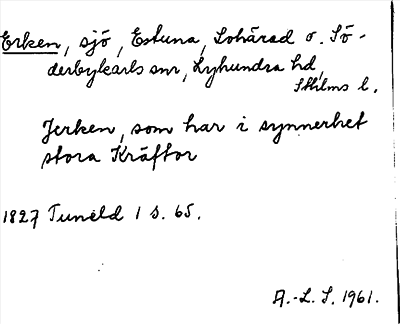 Erken, sjö, Estuna, Lohärad o. Sö-
derbykarls snr, Lyhundra hd,
Sthlms l.
Jerken, som har i synnerhet
stora Kräftor
1827 Tuneld 1 s. 65.
A.-L. S. 1961.